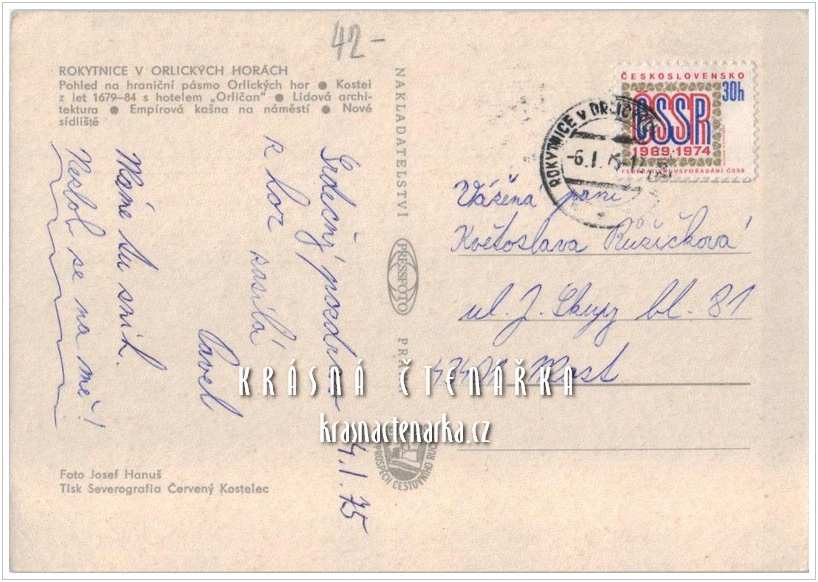 42-
ROKYTNICE V ORLICKÝCH HORÁCH
Pohled na hraniční pásmo Orlických hor ● Kostel
z let 1679–84 s hotelem „Orličan" ● Lidová archi-
tektura ● Empírová kašna na náměstí ● Nové
sídliště
Srdečný pozdrav
z hor zasílá
Pavel
4.1.75
Máme tu sníh.
Nezlob se na mě!
Foto Josef Hanuš
Tisk Severografia Červený Kostelec
NAKLADATELSTVÍ
PRESSFOTO
ČESKOSLOVENSKO
30h
ČSSR
1969-1974
FEDERATIVNÍ USPOŘÁDÁNÍ ČSSR
ROKYTNICE v ORLICK
-6.1.75-
Vážená paní
Květoslava Růžičková
ul. J. Skupy bl. 81
43401 Most
KRÁSNÁ ČTENÁŘKA
krasnactenarka.cz